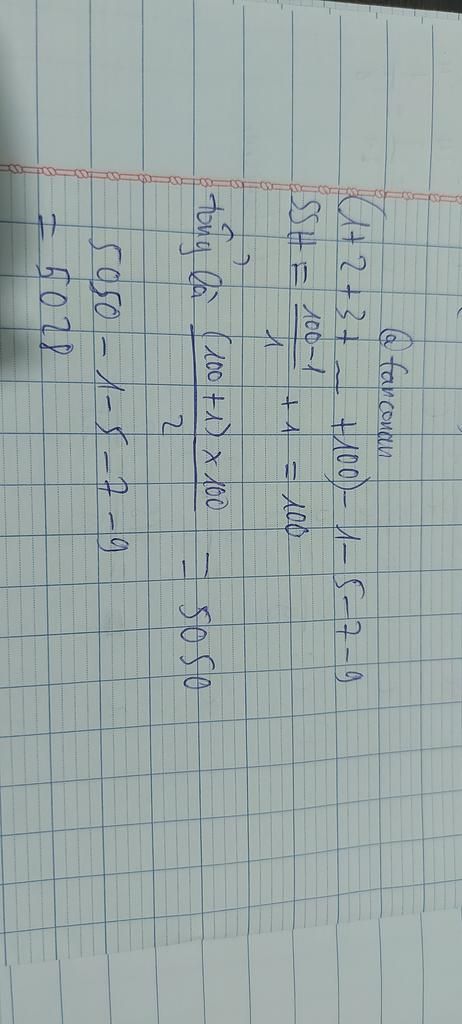 @fanconan
(1+2+3+ ... +100) - 1-5-7-9
SSH = \frac{100-1}{1} + 1 = 100
tổng là \frac{(100+1)×100}{2} = 5050
5050 - 1-5-7-9
= 5028